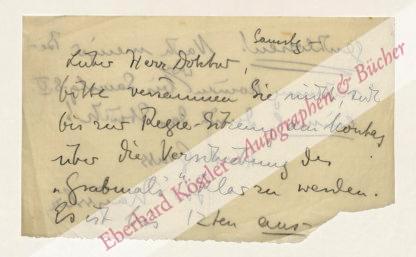 Samstag
Lieber Herr Doktor,
bitte versäumen Sie nicht, sich
bis zur Regie-Sitzung am Montag
über die Verschiebung des
"Grabmals" klar zu werden.
Es ist das 12ten aus-
Eberhard Köstler - Autographen & Bücher